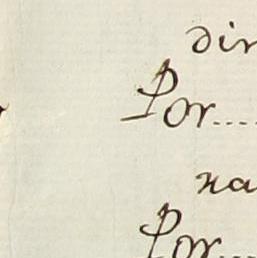 din
Por....
na
Por....